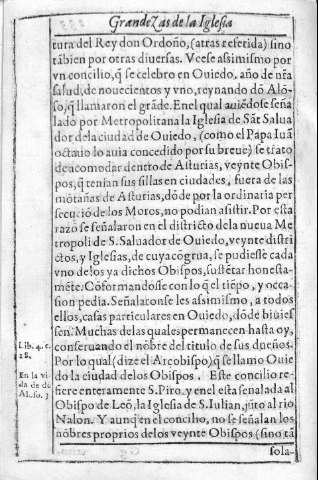 Grandezas de la Iglesia
tura del Rey don Ordoño, (atras referida) sino
tãbien por otras diuersas. Veese assimismo por
vn concilio, q̃ se celebro en Ouiedo, año de nr̃a
salud, de nouecientos y vno, reynando dõ Alõ-
so, q̃ llamaron el grãde. En el qual auiẽdose seña
lado por Metropolitana la Iglesia de Sãt Salua
dor de la ciudad de Ouiedo, (como el Papa Iuã
octauo lo auia concedido por su breue) se trato
de acomodar dentro de Asturias, veynte Obis-
pos, q̃ tenian sus sillas en ciudades, fuera de las
mõtañas de Asturias, dõde por la ordinaria per
secuciõ de los Moros, no podian asistir. Por esta
razo se señalaron en el districto de la nueua Me
tropoli de S. Saluador de Ouiedo, veynte distri
ctos, y Iglesias, de cuya cõgrua, se pudiesse cada
vno de los ya dichos Obispos, sustẽtar honesta-
mẽte. Cõformandose con lo q̃ el tiẽpo, y occa-
sion pedia. Señalaronse les assimismo, a todos
ellos, casas particulares en Ouiedo, dõde biuies
sen. Muchas de las quales permanecen hasta oy,
conseruando el nõbre del titulo de sus dueños.
Lib. 4. c.
28.
Por lo qual (dize el Arcobispo) q̃ se llamo Ouie
do la ciudad de los Obispos. Este concilio re-
En la vi
da de dõ
Al. so. 3
fiere enteramente S. Piro, y en el esta señalada al
Obispo de Leõ, la Iglesia de S. Iulian, jũto al rio
Nalon. Y aunq̃ en el concilio, no se señalan los
nõbres proprios de los veynte Obispos (sino tã
sola-